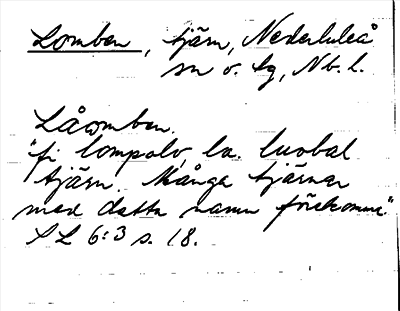 Lomben, tjärn, Nederluleå
sn o. lg, Nb. l.
Låomben.
"fi lompolo, la. luobal
tjärn. Många tjärnar
med detta namn förekomma."
SL 6:3 s. 18.